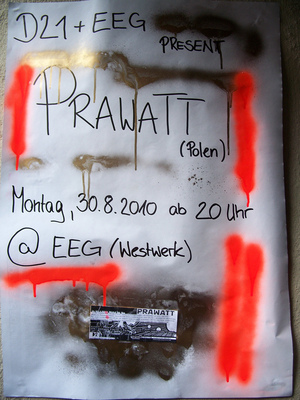 D21 + EEG
PRESENT
PRAWATT
(Polen)
Montag, 30.8.2010 ab 20 Uhr
@ EEG (Westwerk)
PRAWATT